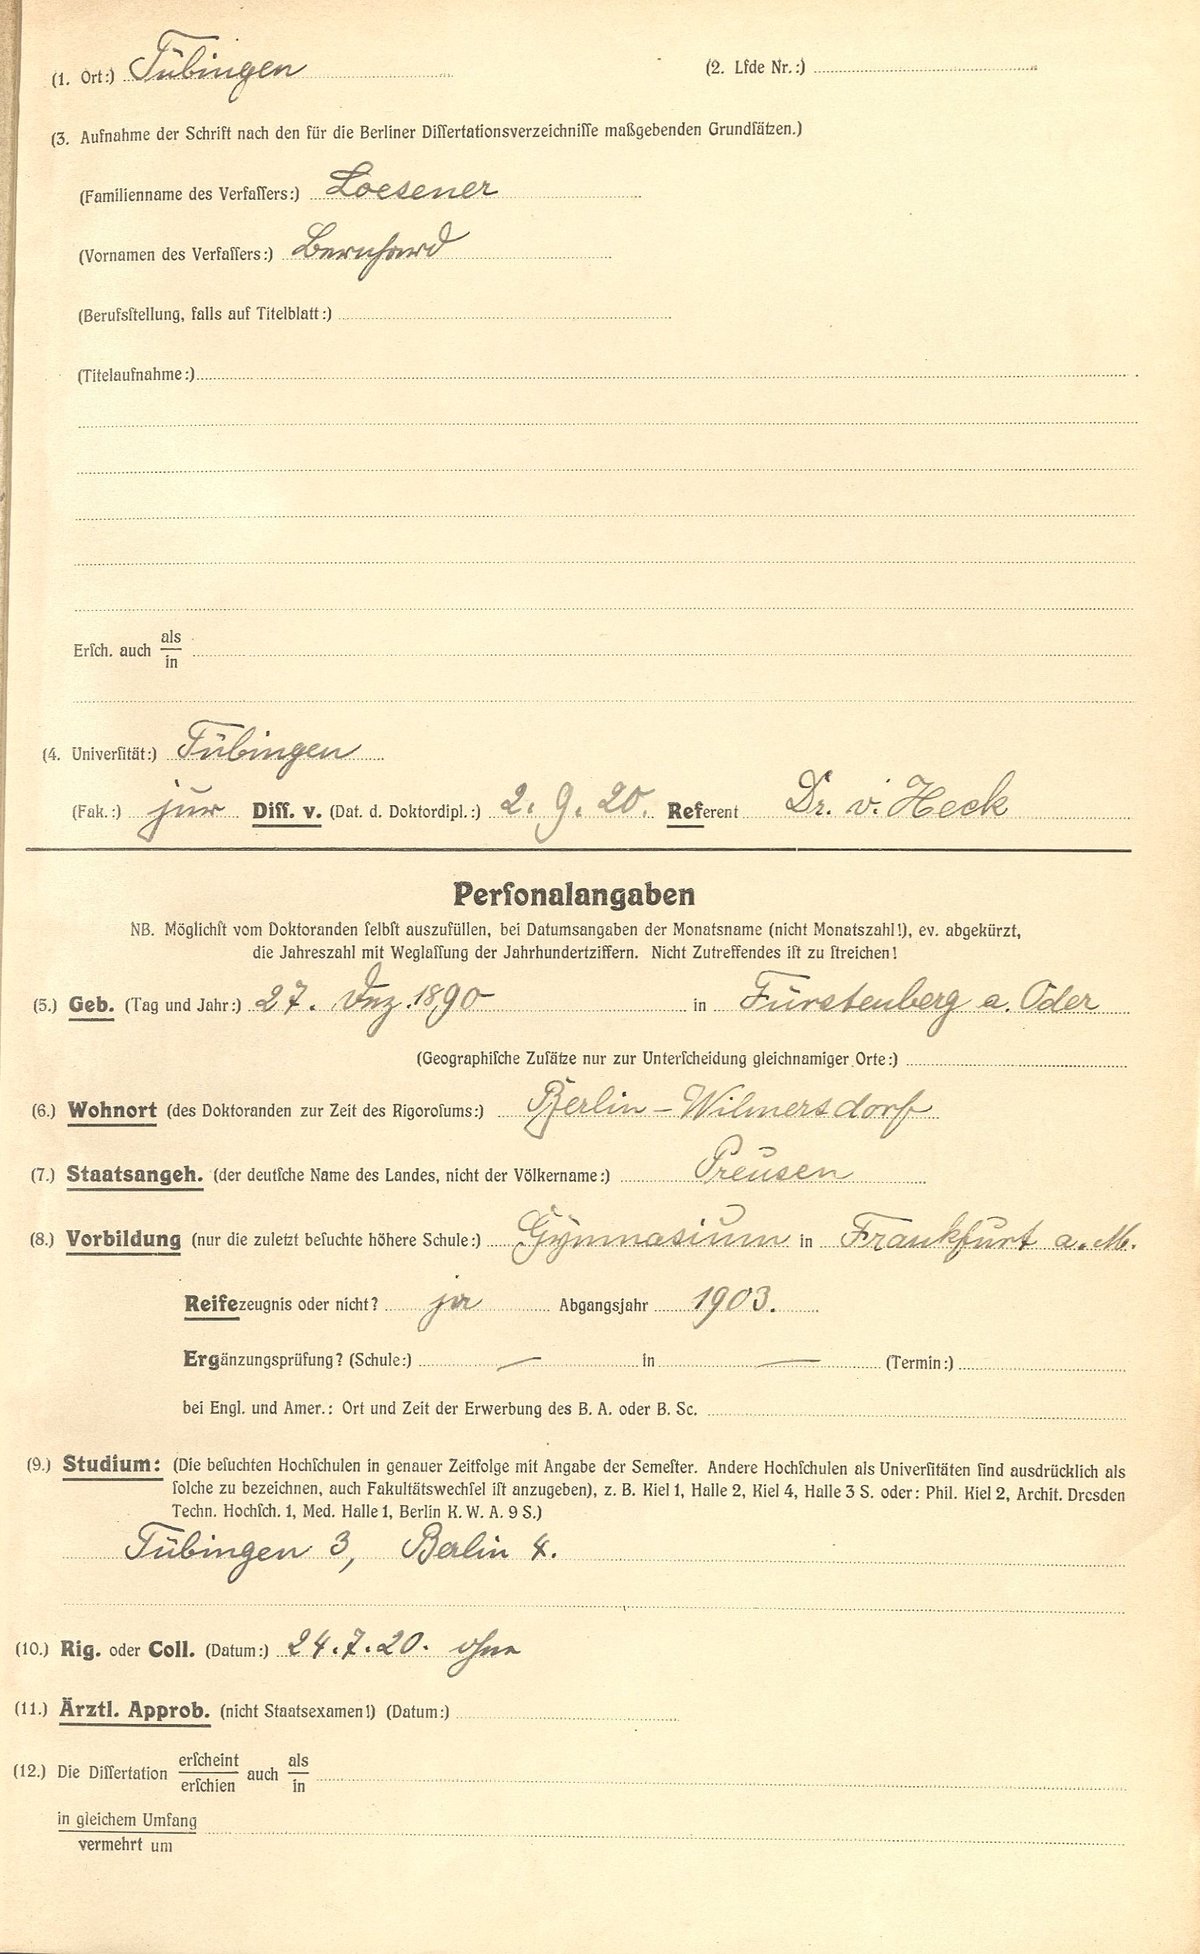 (1. Ort:) Tübingen (2. Lfde Nr.:)
(3. Aufnahme der Schrift nach den für die Berliner Diſſertationsverzeichniſſe maßgebenden Grundſätzen.)
(Familienname des Verfaſſers:) Loesener
(Vornamen des Verfaſſers:) Bernhard
(Berufsſtellung, falls auf Titelblatt:)
(Titelaufnahme:)
Erſch. auch als
in
(4. Univerſität:) Tübingen
(Fak.:) jur Diſſ. v. (Dat. d. Doktordipl.:) 2. 9. 20. Referent Dr. v. Heck
Perſonalangaben
NB. Möglichſt vom Doktoranden ſelbſt auszufüllen, bei Datumsangaben der Monatsname (nicht Monatszahl!), ev. abgekürzt,
die Jahreszahl mit Weglaſſung der Jahrhundertziffern. Nicht Zutreffendes iſt zu ſtreichen!
(5.) Geb. (Tag und Jahr:) 27. Dez. 1890 in Fürstenberg a. Oder
(Geographiſche Zuſätze nur zur Unterſcheidung gleichnamiger Orte:)
(6.) Wohnort (des Doktoranden zur Zeit des Rigoroſums:) Berlin – Wilmersdorf
(7.) Staatsangeh. (der deutſche Name des Landes, nicht der Völkername:) Preusen
(8.) Vorbildung (nur die zuletzt beſuchte höhere Schule:) Gymnasium in Frankfurt a. M.
Reifezeugnis oder nicht? ja Abgangsjahr 1903.
Ergänzungsprüfung? (Schule:) — in — (Termin:)
bei Engl. und Amer.: Ort und Zeit der Erwerbung des B. A. oder B. Sc.
(9.) Studium: (Die beſuchten Hochſchulen in genauer Zeitfolge mit Angabe der Semeſter. Andere Hochſchulen als Univerſitäten ſind ausdrücklich als
ſolche zu bezeichnen, auch Fakultätswechſel iſt anzugeben), z. B. Kiel 1, Halle 2, Kiel 4, Halle 3 S. oder: Phil. Kiel 2, Archit. Dresden
Techn. Hochſch. 1, Med. Halle 1, Berlin K. W. A. 9 S.)
Tübingen 3, Berlin 4.
(10.) Rig. oder Coll. (Datum:) 24. 7. 20. ohne
(11.) Ärztl. Approb. (nicht Staatsexamen!) (Datum:)
(12.) Die Diſſertation erſcheint auch als
erſchien in
in gleichem Umfang
vermehrt um